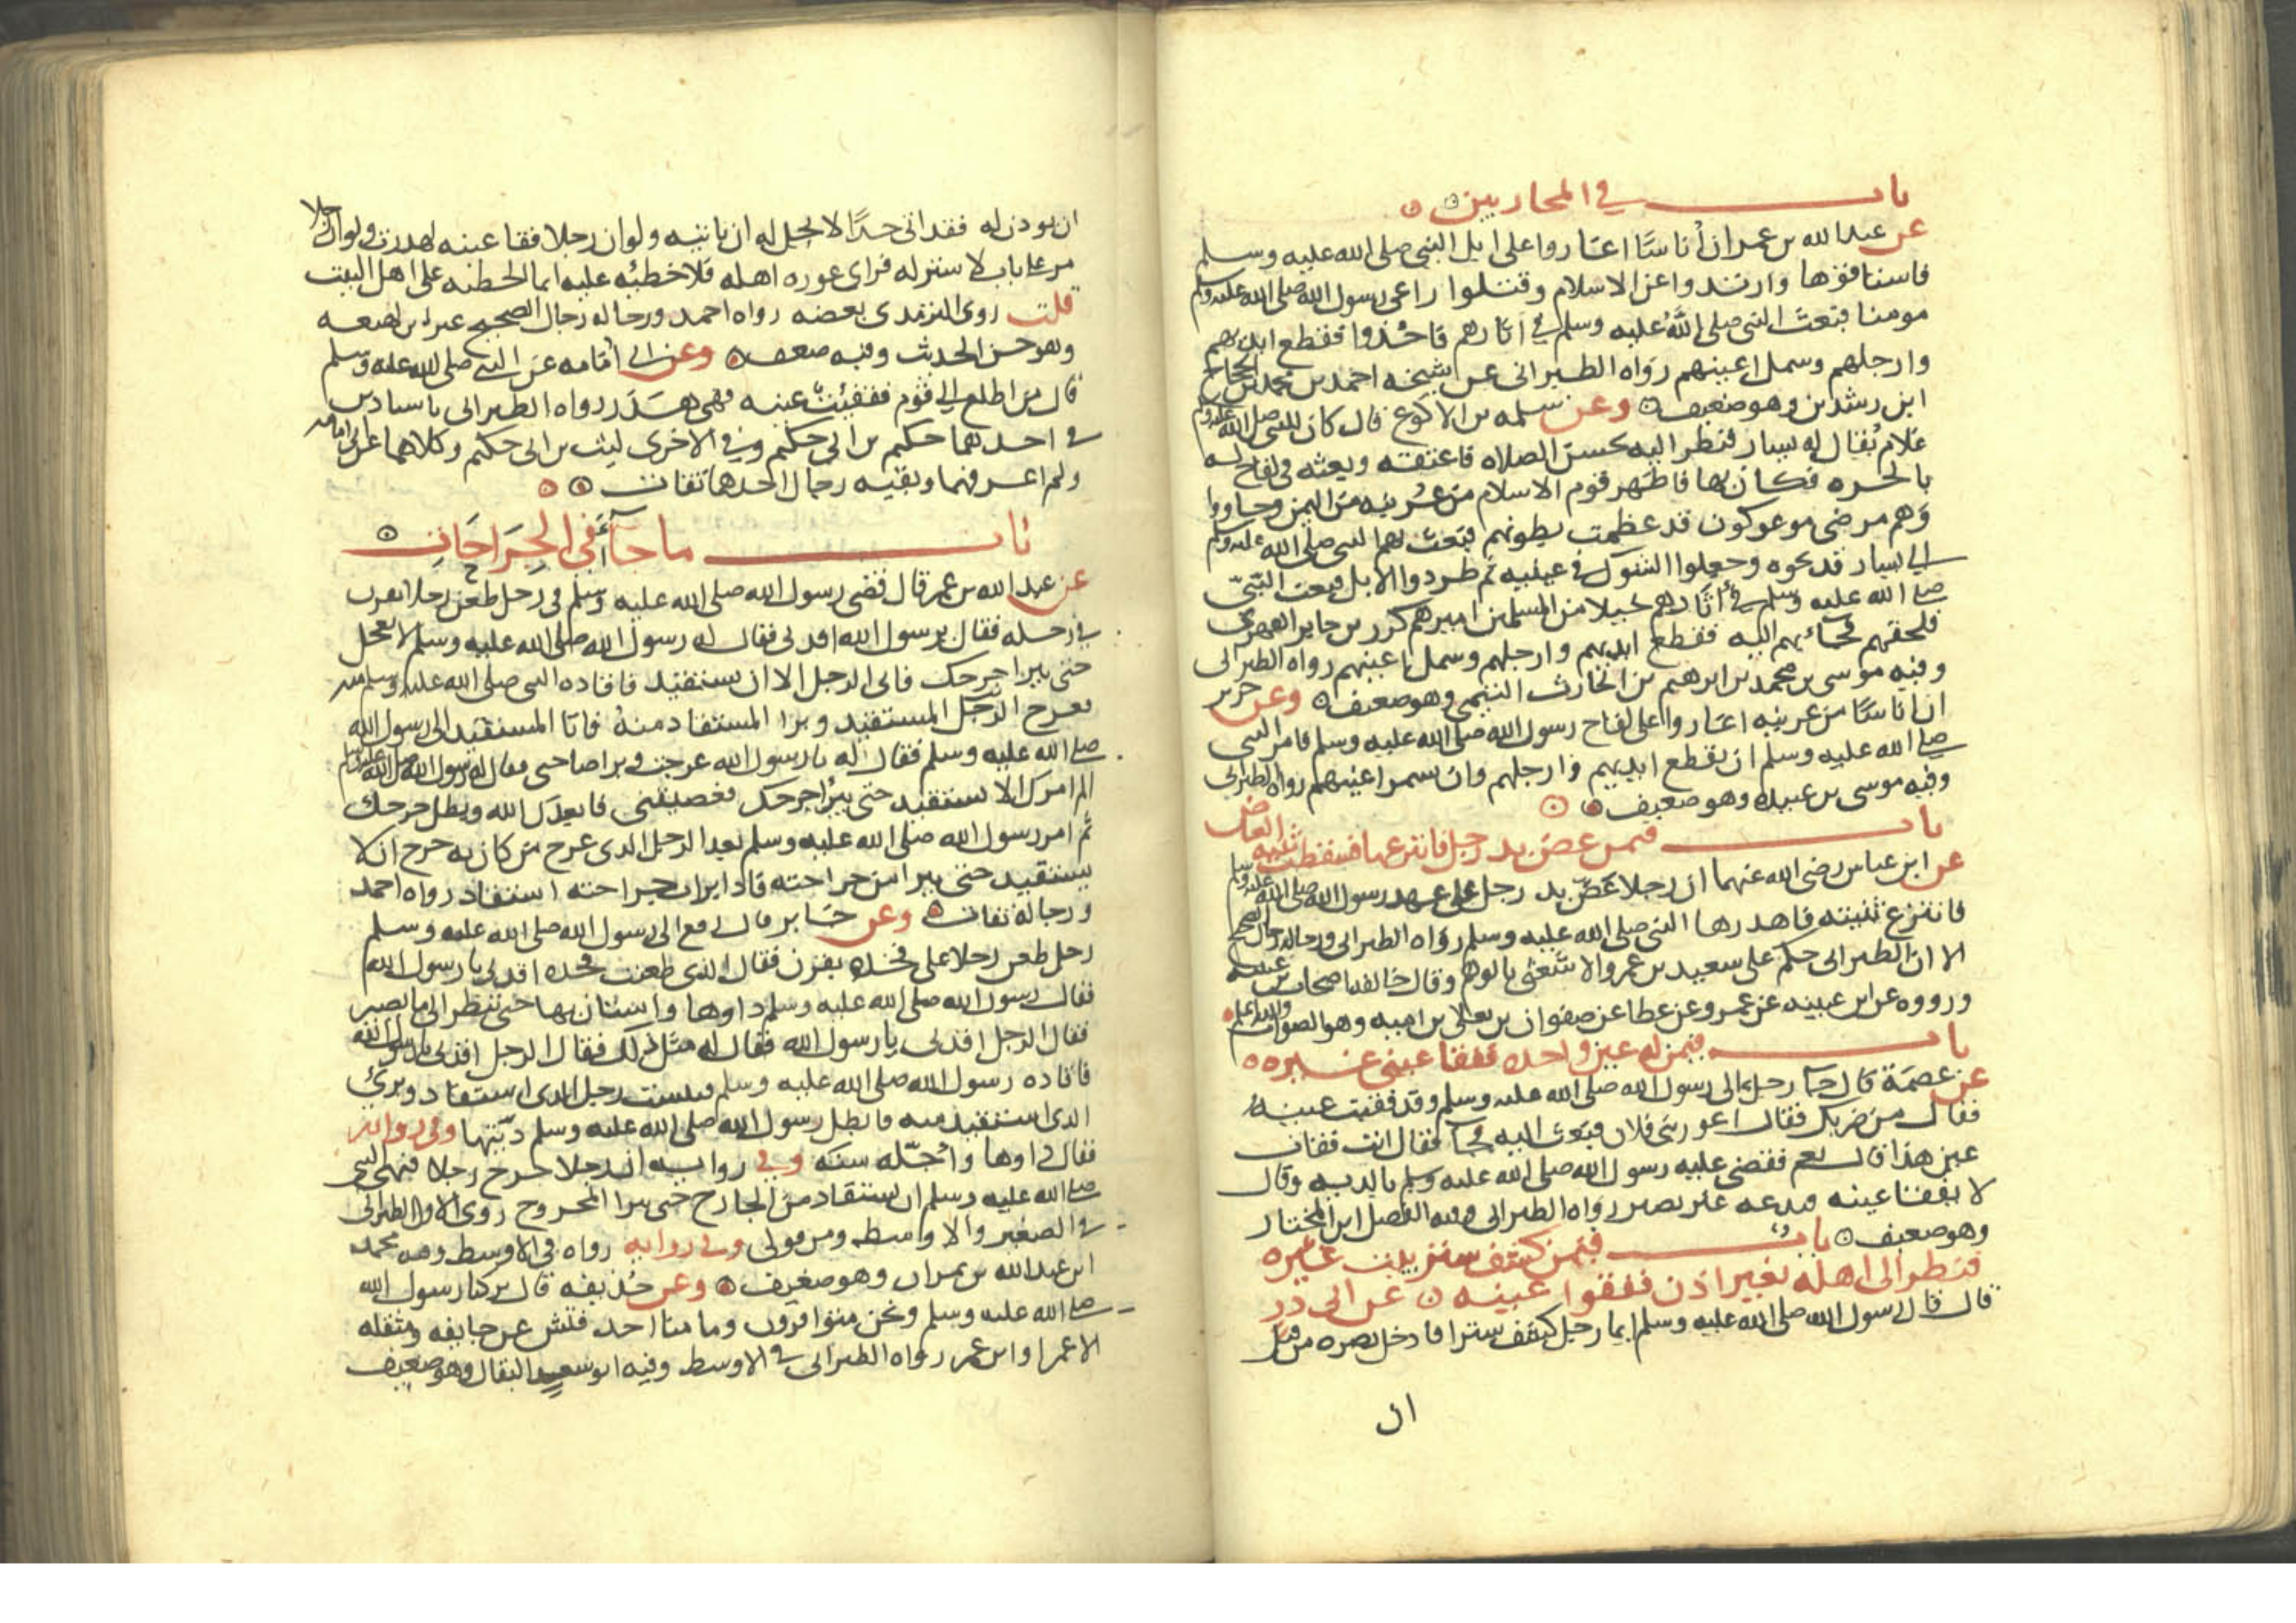 باب في المحاربين
عن عبد الله بن عمر ان أناسا اغاروا على ابل النبي صلى الله عليه وسلم
فاستاقوها وارتدوا عن الاسلام وقتلوا راعي رسول الله صلى الله عليه وسلم
مومنا فبعث النبي صلى الله عليه وسلم في اثارهم فاخذوا فقطع ايديهم
وارجلهم وسمل اعينهم رواه الطبراني عن شيخه احمد بن محمد بن الحجاج
ابن رشدين وهو ضعيف وعن سلمه بن الاكوع قال كان للنبي صلى الله عليه وسلم
غلام يقال له يسار فنظر اليه يحسن الصلاه فاعتقه وبعثه في لقاح له
بالحره فكان بها فاظهر قوم الاسلام من عرينه من اليمن وجاووا
وهم مرضى موعوكون قد عظمت بطونهم فبعث بهم النبي صلى الله عليه وسلم
الى يسار فذبحوه وجعلوا الشوك في عينيه ثم طردوا الابل فبعث النبي
صلى الله عليه وسلم في أثارهم خيلا من المسلمين اميرهم كرز بن جابر الفهري
فلحقهم فجاء بهم اليه فقطع ايديهم وارجلهم وسمل اعينهم رواه الطبراني
وفيه موسى بن محمد بن ابرهيم بن الحارث التيمي وهو ضعيف وعن جرير
ان اناسا من عرينه اغاروا على لقاح رسول الله صلى الله عليه وسلم فامر النبي
صلى الله عليه وسلم ان يقطع ايديهم وارجلهم وان سمر اعينهم رواه الطبراني
وفيه موسى بن عبيده وهو ضعيف
باب فيمن عض يد رجل فانتزعها فسقطت ثنيه العاض
عن ابن عباس رضي الله عنهما ان رجلا عض يد رجل على عهد رسول الله صلى الله عليه وسلم
فانتزع ثنيته فاهدرها النبي صلى الله عليه وسلم رواه الطبراني ورجاله رجال الصحيح
الا ان الطبراني حكم على سعيد بن عمرو الاشعثي بالوهم وقال خالفه اصحاب ابن عيينه
ورووه عن ابن عيينه عن عمرو عن عطا عن صفوان بن يعلى بن اميه وهو الصواب والله اعلم
باب فيمن له عين واحده ففقا عيني غيره
عن عصمة قال جا رجل الى رسول الله صلى الله عليه وسلم وقد فقيت عينه
فقال من ضربك فقال اعور بني فلان فبعث اليه فجا فقال انت فقات
عين هذا قال نعم فقضى عليه رسول الله صلى الله عليه وسلم بالديه وقال
لا نفقا عينه فندعه غير بصير رواه الطبراني وفيه الفضل ابن المختار
وهو ضعيف باب فيمن كشف ستر بيت غيره
فنظر الى اهله بغير اذن ففقوا عينه عن ابي ذر
قال قال رسول الله صلى الله عليه وسلم ايما رجل كشف سترا فادخل بصره من قبل
ان
ان يوذن له فقد اتى حدا لا يحل له ان ياتيه ولو ان رجلا فقا عينه لهدرت ولو ان رجلا
مر على باب لا ستر له فراى عوره اهله فلا خطيه عليه انما الخطيه على اهل البيت
قلت روى الترمذي بعضه رواه احمد ورجاله رجال الصحيح غير ابن لهيعه
وهو حسن الحديث وفيه ضعف وعن ابي أمامه عن النبي صلى الله عليه وسلم
قال من اطلع الى قوم ففقيت عينه فهي هدر رواه الطبراني باسنادين
في احدهما حكيم بن ابي حكيم وفي الاخرى ليث بن ابي حكيم وكلاهما عن ابي امامه
ولم اعرفهما وبقيه رجال احدهما ثقات
باب ما جآء في الجراحات
عن عبد الله بن عمر قال قضى رسول الله صلى الله عليه وسلم في رجل طعن رجلا بقرن
في رجله فقال يرسول الله اقدني فقال له رسول الله صلى الله عليه وسلم لا تعجل
حتى يبرا جرحك فابى الرجل الا ان يستقيد فاقاده النبي صلى الله عليه وسلم منه
فعرج الرجل المستقيد وبرا المستقاد منه فاتا المستقيد الى رسول الله
صلى الله عليه وسلم فقال له يا رسول الله عرجت وبرا صاحبي فقال له رسول الله صلى الله عليه وسلم
الم امرك الا تستقيد حتى يبرأ جرحك فعصيتني فابعدك الله وبطل جرحك
ثم امر رسول الله صلى الله عليه وسلم بعد الرجل الذي عرج من كان به جرح ان لا
يستقيد حتى يبرا من جراحته فاذا برات جراحته استقاد رواه احمد
ورجاله ثقات وعن جابر قال رفع الى رسول الله صلى الله عليه وسلم
رجل طعن رجلا على فخذه بقرن فقال الذي طعنت فخذه اقدني يا رسول الله
فقال رسول الله صلى الله عليه وسلم داوها واستان بها حتى تنظر الى ما تصير
فقال الرجل اقدني يا رسول الله فقال له مثل ذلك فقال الرجل اقدني يا رسول الله
فاقاده رسول الله صلى الله عليه وسلم فيبست رجل الذي استقاد وبرئ
الذي استقيد منه فابطل رسول الله صلى الله عليه وسلم ديتها وفي روايه
فقال داوها وأجله سنه وفي روايه ان رجلا جرح رجلا فنهى النبي
صلى الله عليه وسلم ان يستقاد من الجارح حتى يبرا المجروح روى الاول الطبراني
في الصغير والاوسط ومن قولي وفي روايه رواه في الاوسط وفيه محمد
ابن عبد الله بن نمران وهو ضعيف وعن حذيفه قال كنا رسول الله
صلى الله عليه وسلم ونحن متوافرون وما منا احد فتش عن جايفه ومنقله
الا عمرا وابن عمر رواه الطبراني في الاوسط وفيه ابو سعيد البقال وهو ضعيف